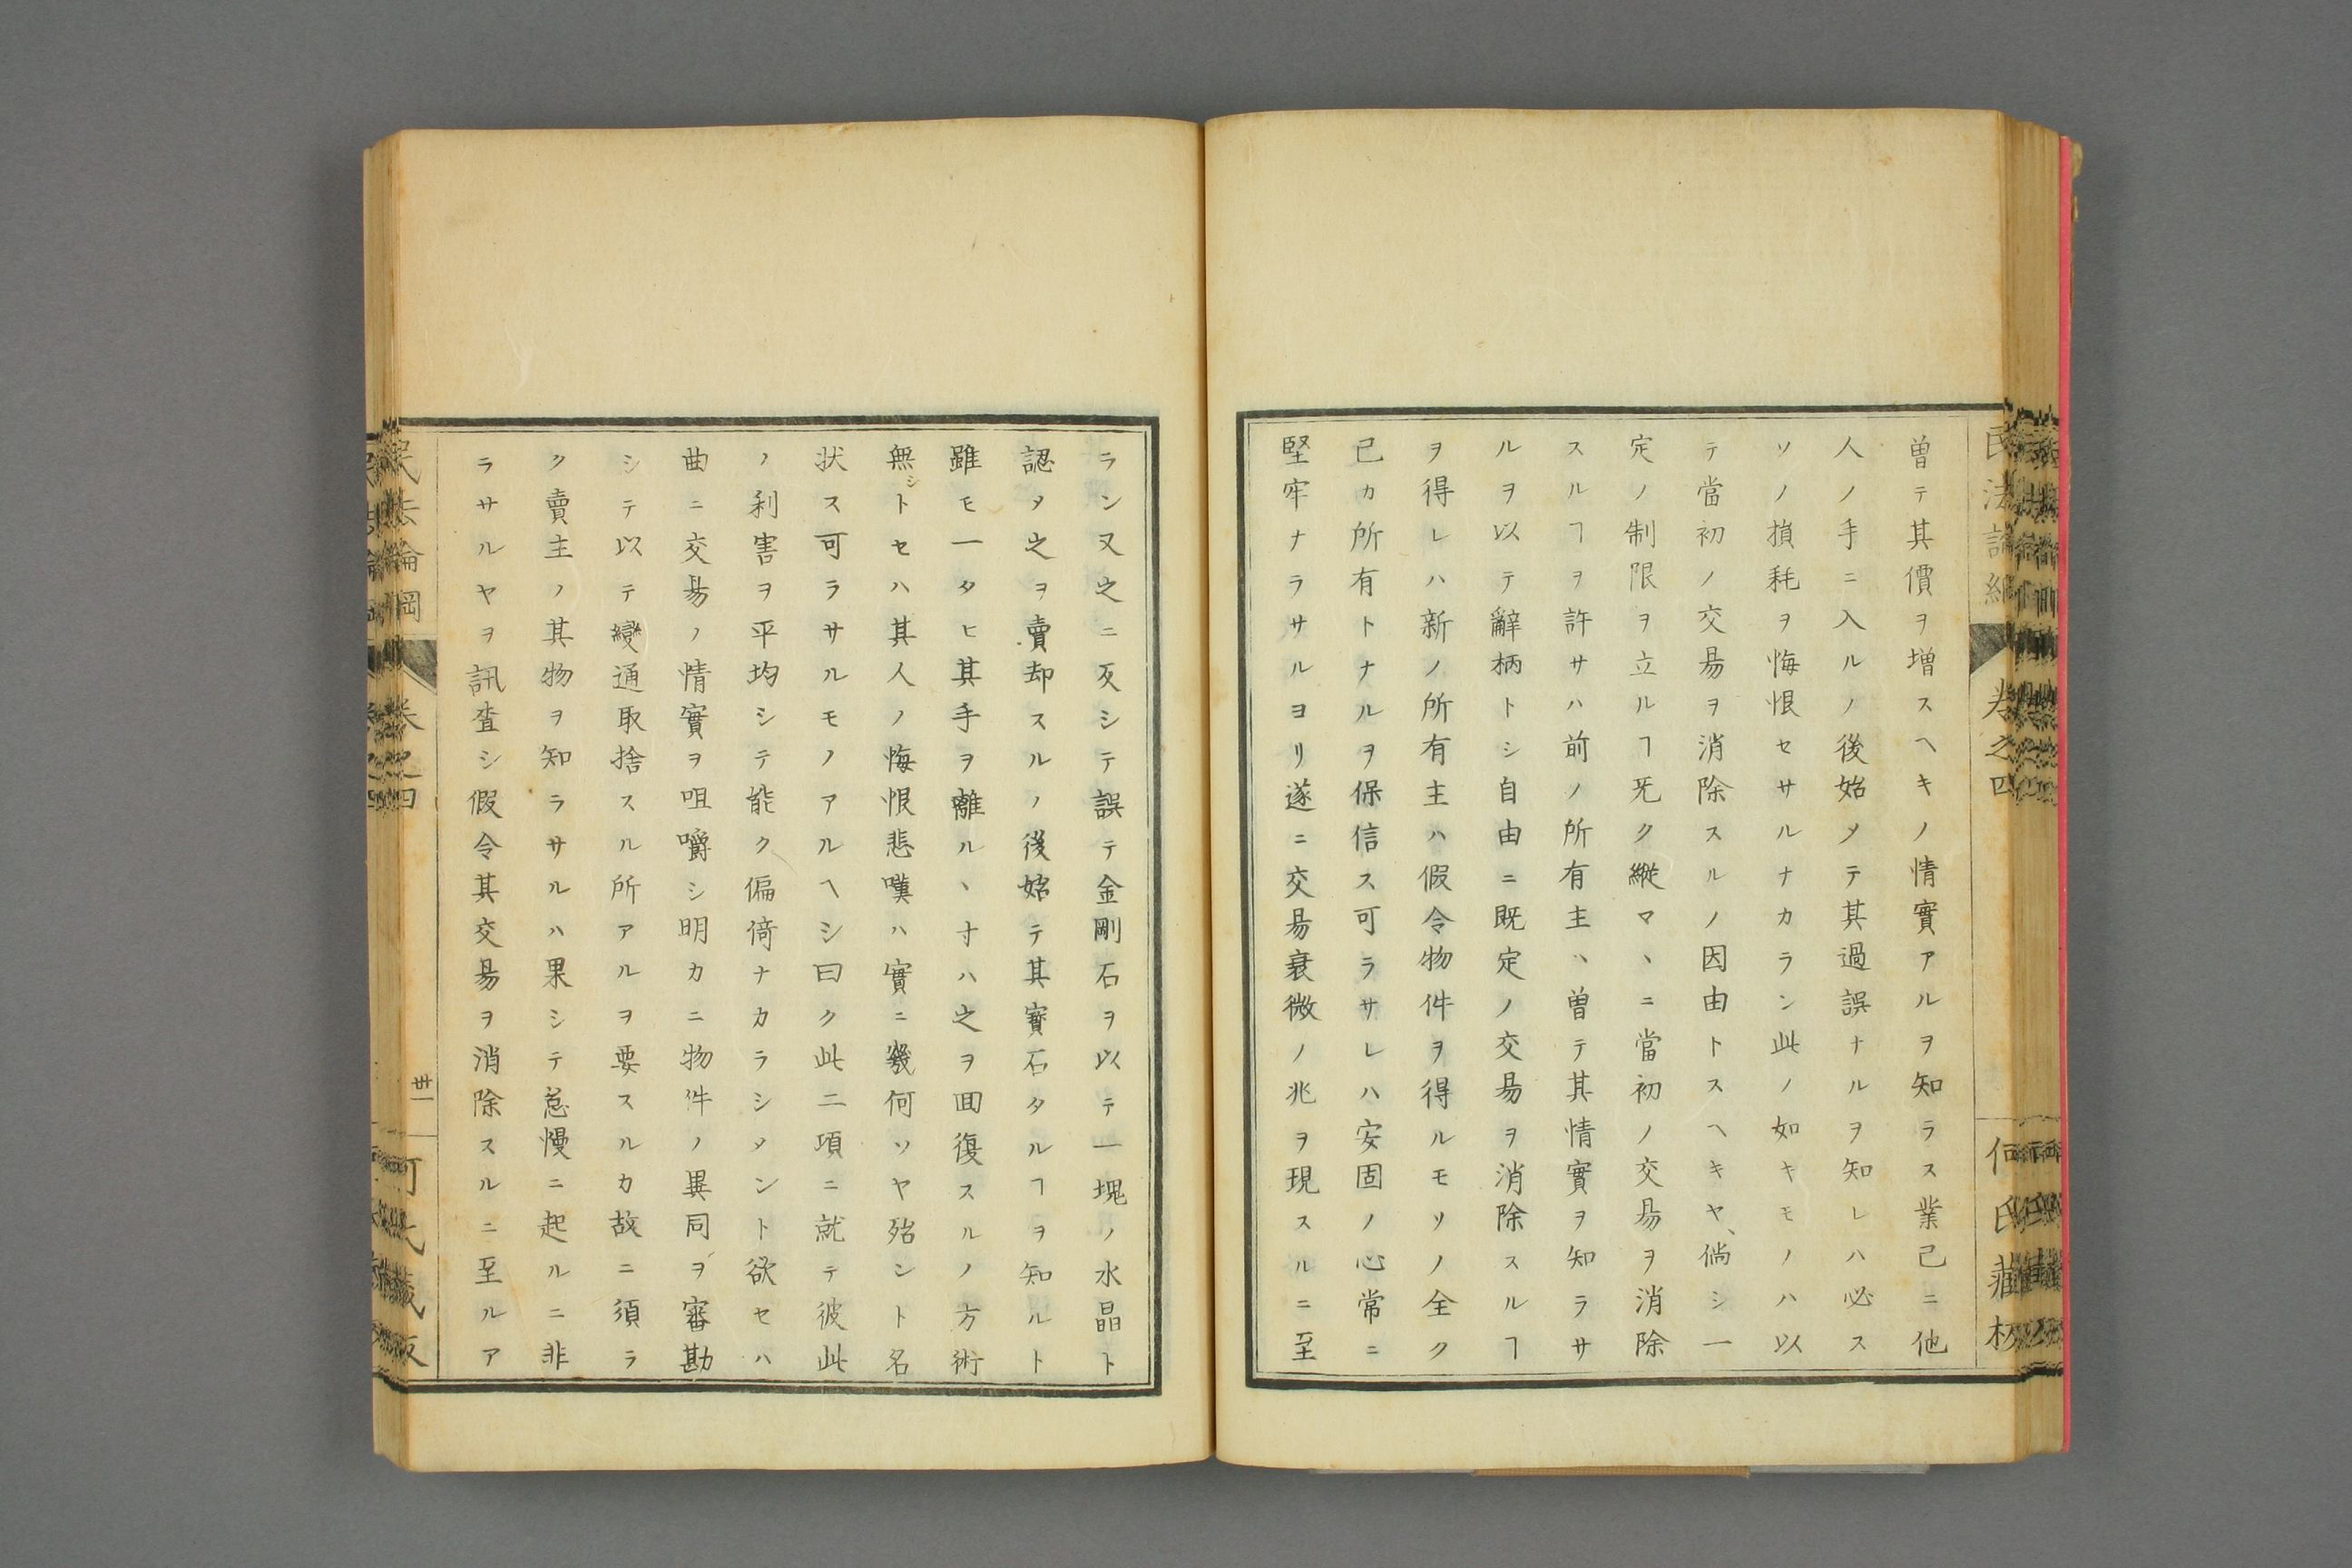 曽テ其價ヲ増スヘキノ情實アルヲ知ラス業已ニ他
人ノ手ニ入ルノ後始メテ其過誤ナルヲ知レハ必ス
ソノ損耗ヲ悔恨セサルナカラン此ノ如キモノハ以
テ當初ノ交易ヲ消除スルノ因由トスヘキヤ、倘シ一
定ノ制限ヲ立ルヿ旡ク縦マヽニ當初ノ交易ヲ消除
スルヿヲ許サハ前ノ所有主ハ曽テ其情實ヲ知ラサ
ルヲ以テ辭柄トシ自由ニ既定ノ交易ヲ消除スルヿ
ヲ得レハ新ノ所有主ハ假令物件ヲ得ルモソノ全ク
己カ所有トナルヲ保信ス可ラサレハ安固ノ心常ニ
堅牢ナラサルヨリ遂ニ交易衰微ノ兆ヲ現スルニ至
ラン又之ニ反シテ誤テ金剛石ヲ以テ一塊ノ水晶ト
認メ之ヲ賣却スルノ後始テ其寶石タルヿヲ知ルト
雖モ一タヒ其手ヲ離ルヽ寸ハ之ヲ囬復スルノ方術
無シトセハ其人ノ悔恨悲嘆ハ實ニ幾何ソヤ殆ント名
状ス可ラサルモノアルヘシ曰ク此二項ニ就テ彼此
ノ利害ヲ平均シテ能ク偏倚ナカラシメント欲セハ
曲ニ交易ノ情實ヲ咀嚼シ明カニ物件ノ異同ヲ審勘
シテ以テ變通取捨スル所アルヲ要スルカ故ニ須ラ
ク賣主ノ其物ヲ知ラサルハ果シテ怠慢ニ起ルニ非
ラサルヤヲ訊査シ假令其交易ヲ消除スルニ至ルア
民法論綱
卷之四
卅一
何氏藏版